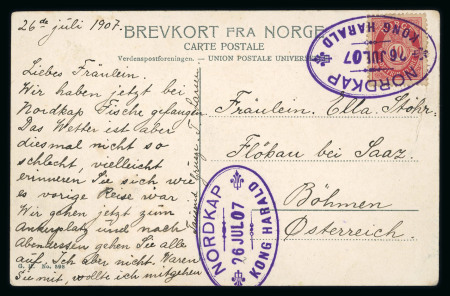 26te juli 1907.
BREVKORT FRA NORGE.
CARTE POSTALE
Verdenspostforeningen. – UNION POSTALE UNIVER
Liebes Fräulein.
Wir haben jetzt bei
Nordkap Fische gefangen
Das Wetter ist aber
diesmal nicht so
schlecht, vielleicht
erinneren Sie sich, wie
es vorige Reise war.
Wir gehen jetzt zum
Ankerplatz und nach
Abendessen gehen Sie alle
auf. Ich aber nicht. Waren
Sie mit, wollte ich mitgehen
G. No. 898
Fräulein Ella Stöhr.
Flöhau bei Saaz.
Böhmen
Österreich.
NORDKAP
26 JUL 07
KONG HARALD
NORDKAP
26 JUL 07
KONG HARALD
10